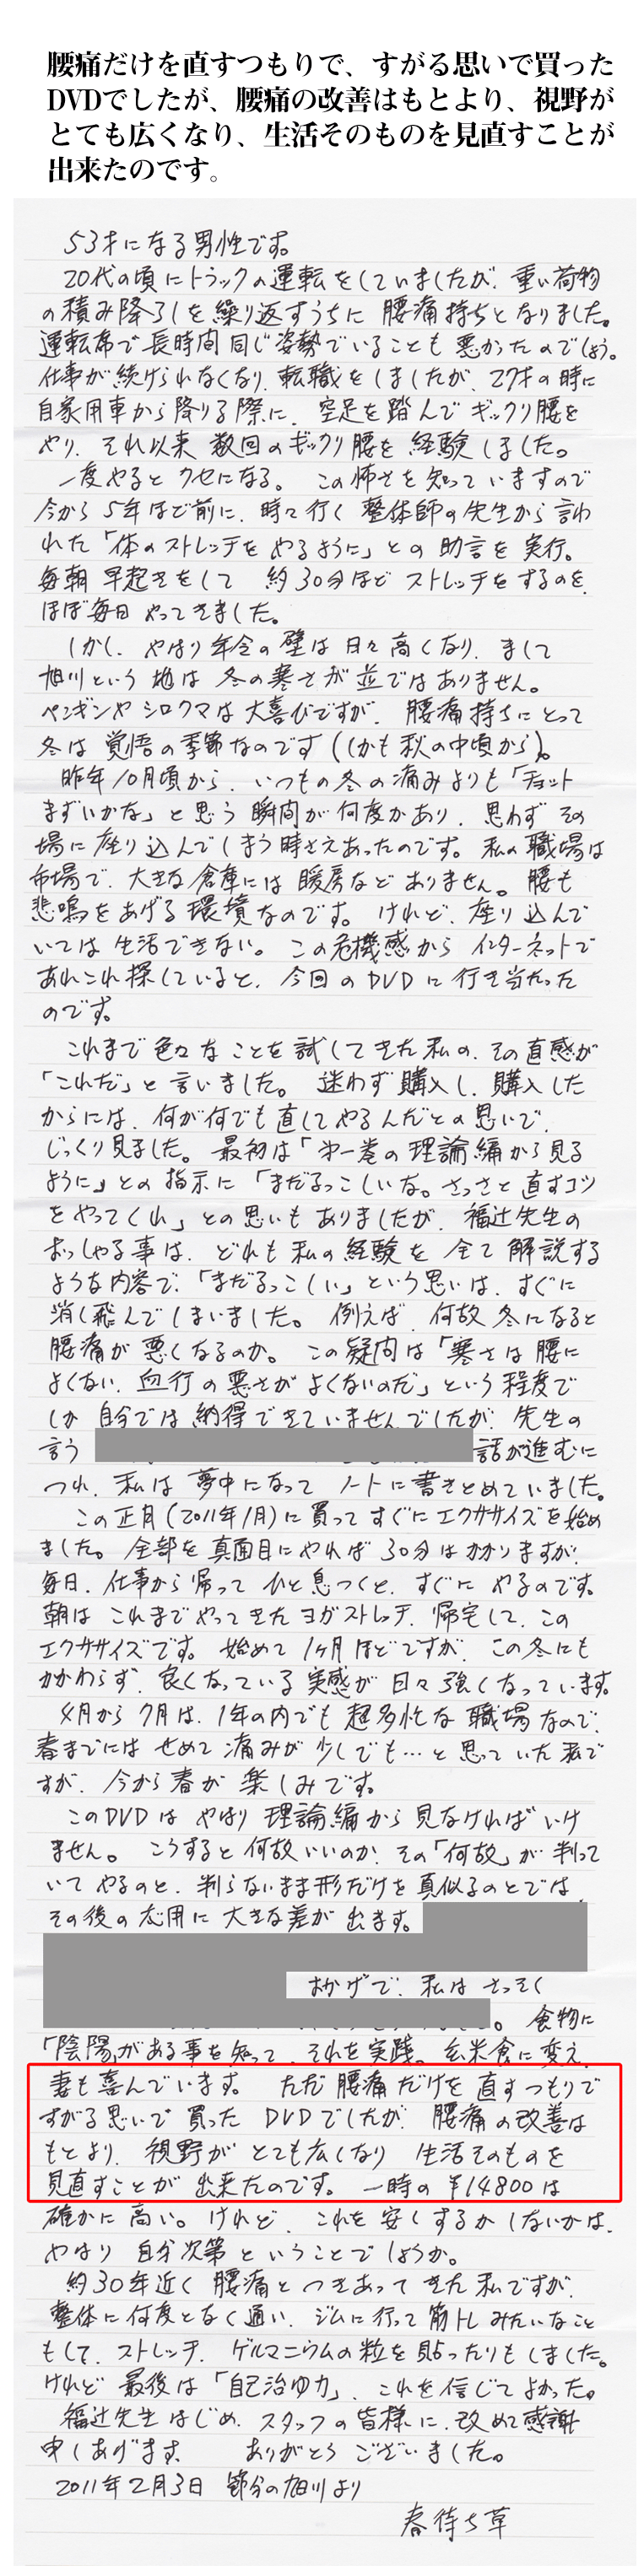 腰痛だけを直すつもりで、すがる思いで買った
DVDでしたが、腰痛の改善はもとより、視野が
とても広くなり、生活そのものを見直すことが
出来たのです。
53才になる男性です。
20代の頃にトラックの運転をしていましたが、重い荷物
の積み降ろしを繰り返すうちに 腰痛持ちとなりました。
運転席で長時間同じ姿勢でいることも悪かったのでしょう。
仕事が続けられなくなり、転職をしましたが、27才の時に
自家用車から降りる際に、空足を踏んでギックリ腰を
やり、それ以来 数回のギックリ腰を経験しました。
一度やるとクセになる。この怖さを知っていますので
今から5年ほど前に、時々行く整体師の先生から言わ
れた「体のストレッチをやるように」との助言を実行。
毎朝早起きをして 約30分ほどストレッチをするのを、
ほぼ毎日やってきました。
しかし、やはり年令の壁は日々高くなり、まして
旭川という地は冬の寒さが並ではありません。
ペンギンやシロクマは大喜びですが、腰痛持ちにとって
冬は覚悟の季節なのです(しかも秋の中頃から)。
昨年10月頃から、いつもの冬の痛みよりも「チョット
まずいかな」と思う瞬間が何度かあり、思わずその
場に座り込んでしまう時さえあったのです。私の職場は
市場で、大きな倉庫には暖房などありません。腰も
悲鳴をあげる環境なのです。けれど、座り込んで
いては生活できない。この危機感からインターネットで
あれこれ探していると、今回のDVDに行き当たった
のです。
これまで色々なことを試してきた私の、その直感が
「これだ」と言いました。迷わず購入し、購入した
からには、何が何でも直してやるんだとの思いで、
じっくり見ました。最初は「第一巻の理論編から見る
ように」との指示に「まだるっこしいな。さっさと直すコツ
をやってくれ」との思いもありましたが、福辻先生の
おっしゃる事は、どれも私の経験を全て解説する
ような内容で、「まだるっこしい」という思いは、すぐに
消し飛んでしまいました。例えば、何故冬になると
腰痛が悪くなるのか。この疑問は「寒さは腰に
よくない、血行の悪さがよくないのだ」という程度で
しか自分では納得できていませんでしたが、先生の
言う 話が進むに
つれ、私は夢中になってノートに書きとめていました。
この正月(2011年1月)に買ってすぐにエクササイズを始め
ました。全部を真面目にやれば30分はかかりますが、
毎日、仕事から帰ってひと息つくと、すぐにやるのです。
朝はこれまでやってきたヨガストレッチ、帰宅して、この
エクササイズです。始めて1ヶ月ほどですが、この冬にも
かかわらず、良くなっている実感が日々強くなっています。
4月から7月は、1年の内でも超多忙な職場なので、
春までにはせめて痛みが少しでも…と思っていた私で
すが、今から春が楽しみです。
このDVDはやはり理論編から見なければいけ
ません。こうすると何故いいのか、その「何故」が判って
いてやるのと、判らないまま形だけを真似るのとでは、
その後の応用に大きな差が出ます。
おかげで、私はさっそく
。食物に
「陰陽」がある事を知って、それを実践。玄米食に変え、
妻も喜んでいます。ただ腰痛だけを直すつもりで
すがる思いで買ったDVDでしたが、腰痛の改善は
もとより、視野がとても広くなり 生活そのものを
見直すことが出来たのです。一時の¥14800は
確かに高い。けれど、これを安くするかしないかは、
やはり自分次第ということでしょうか。
約30年近く腰痛とつきあってきた私ですが、
整体に何度となく通い、ジムに行って筋トレみたいなこと
もして、ストレッチ、ゲルマニウムの粒を貼ったりもしました。
けれど最後は「自己治ゆ力」、これを信じてよかった。
福辻先生はじめ、スタッフの皆様に、改めて感謝
申しあげます。 ありがとうございました。
2011年2月3日 節分の旭川より
春待ち草